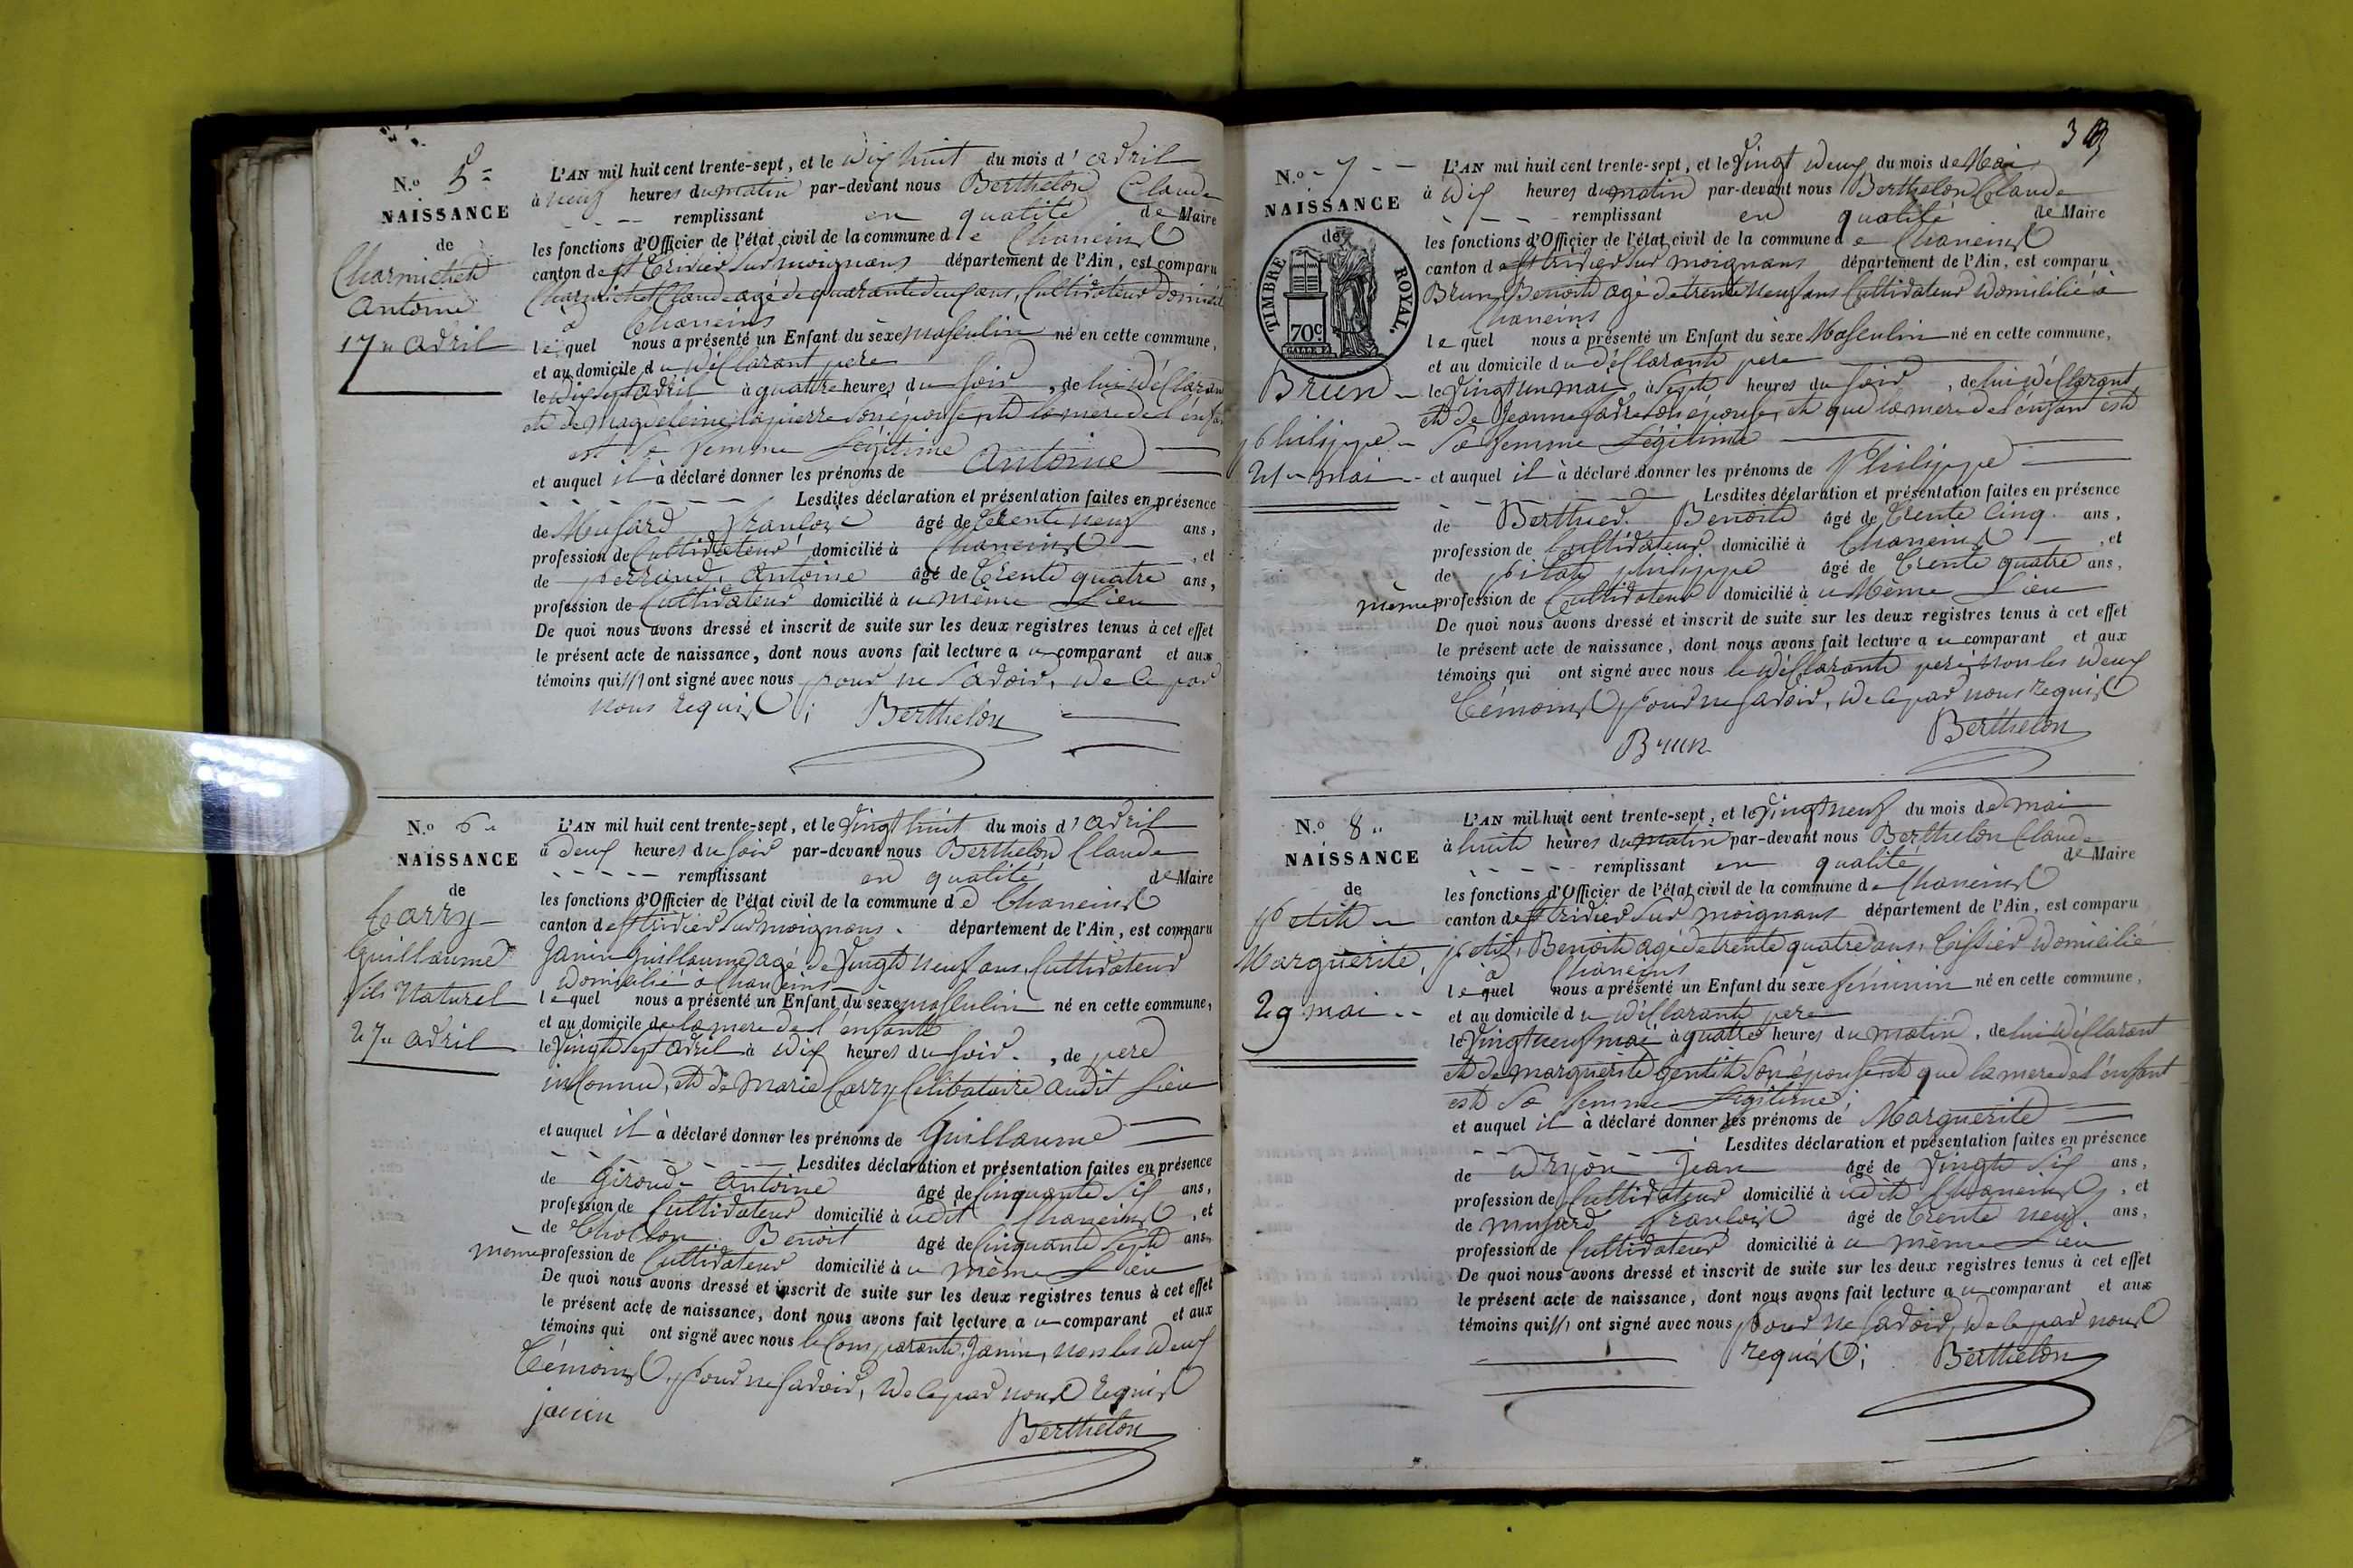 N.o 5=
NAISSANCE
de
Charmichet
Antoine
17 " avril
L'AN mil huit cent trente-sept, et le dix huit du mois d' avril
à neuf heures du matin par-devant nous Berthelon Claude
remplissant en qualité de Maire
les fonctions d'Officier de l'état civil de la commune de Chaneins
canton de St Trivier sur moignans département de l'Ain, est comparu
Charmichet Claude agé de quarante deux ans, Cultivateur domicilié
à Chaneins
lequel nous a présenté un Enfant du sexe masculin né en cette commune,
et au domicile du déclarant pere
le dix sept avril à quattre heures du soir, de lui déclarant
et de Magdeleine laquierre son épouse, et la mere de l'énfant
est sa femme Légitime
et auquel il à déclaré donner les prénoms de Antoine
Lesdites déclaration et présentation faites en présence
de Musard françois âgé de trente neuf ans,
profession de Cultivateur domicilié à Chaneins, et
de perraud, Antoine âgé de trente quatre ans,
profession de Cultivateur domicilié à u même Lieu
De quoi nous avons dressé et inscrit de suite sur les deux registres tenus à cet effet
le présent acte de naissance, dont nous avons fait lecture a u comparant et aux
témoins qui ont signé avec nous pour ne savoir, de ce par
nous requis; Berthelon
N.o 6 "
NAISSANCE
de
Carry
Guillaume
fils Naturel
27 " avril
L'AN mil huit cent trente-sept, et le vingt huit du mois d' avril
à deux heures du soir par-devant nous Berthelon Claude
remplissant en qualité de Maire
les fonctions d'Officier de l'état civil de la commune de Chaneins
canton de St trivier sur moignans. département de l'Ain, est comparu
Janin Guillaume agé de vingt neuf ans, Cultivateur
domicilié à Chaneins
lequel nous a présenté un Enfant du sexe masculin né en cette commune,
et au domicile de la mere de l'énfant
le vingt sept avril à dix heures du soir., de pere
inConnu, et de Marie Carry Célibataire audit Lieu
et auquel il à déclaré donner les prénoms de Guillaume
Lesdites déclaration et présentation faites en présence
de Giroud Antoine âgé de Cinquante Six ans,
profession de Cultivateur domicilié à udit Chaneins, et
de Chollon Benoit âgé de Cinquante Sept ans,
même profession de Cultivateur domicilié à u même Lieu
De quoi nous avons dressé et inscrit de suite sur les deux registres tenus à cet effet
le présent acte de naissance, dont nous avons fait lecture a u comparant et aux
témoins qui ont signé avec nous le Comparant, Janin, non les deux
Témoins, pour ne savoir, de ce par nous requis
janin
Berthelon
3
N.o - 7 -
NAISSANCE
de
TIMBRE ROYAL.
70c
Brun
Philippe
21 " mai
L'AN mil huit cent trente-sept, et le vingt deux du mois de Mai
à dix heures du matin par-devant nous Berthelon Claude
remplissant en qualité de Maire
les fonctions d'Officier de l'état civil de la commune de Chaneins
canton de St trivier sur moignans département de l'Ain, est comparu
Brun, Benoit agé de trente neuf ans Cultivateur domicilié à
Chaneins
lequel nous a présenté un Enfant du sexe Masculin né en cette commune,
et au domicile du déclarant pere
le vingt un mai à sept heures du soir, de lui déclarant
et de Jeanne son épouse, et que la mere de l'énfant est
sa femme Légitime
et auquel il à déclaré donner les prénoms de Philippe
Lesdites déclaration et présentation faites en présence
de Berthier. Benoit âgé de trente Cinq. ans,
profession de Cultivateur domicilié à Chaneins, et
de pilat philippe âgé de trente quatre ans,
même profession de Cultivateur domicilié à u Même Lieu
De quoi nous avons dressé et inscrit de suite sur les deux registres tenus à cet effet
le présent acte de naissance, dont nous avons fait lecture a u comparant et aux
témoins qui ont signé avec nous le déclarant pere, non les deux
Témoins, pour ne savoir, de ce par nous requis
Brun Berthelon
N.o 8 "
NAISSANCE
de
Petit
Marguerite,
29 mai
L'AN mil huit cent trente-sept, et le vingt neuf du mois de mai
à huit heures du matin par-devant nous Berthelon Claude
remplissant en qualité de Maire
les fonctions d'Officier de l'état civil de la commune de Chaneins
canton de St trivier sur moignans département de l'Ain, est comparu
petit, Benoit agé de trente quatre ans, Tissier domicilié
à Chaneins
lequel nous a présenté un Enfant du sexe féminin né en cette commune,
et au domicile du déclarant pere
le vingt neuf mai à quatre heures du matin, de lui déclarant
et de marguerite Gentit son épouse, et que la mere de l'énfant
est sa femme Légitime;
et auquel il à déclaré donner les prénoms de Marguerite
Lesdites déclaration et présentation faites en présence
de dryon Jean âgé de vingt Six ans,
profession de Cultivateur domicilié à udit Chaneins, et
de musard françois âgé de trente neuf. ans,
profession de Cultivateur domicilié à u même Lieu
De quoi nous avons dressé et inscrit de suite sur les deux registres tenus à cet effet
le présent acte de naissance, dont nous avons fait lecture a u comparant et aux
témoins qui ont signé avec nous pour ne savoir, de ce par nous
requis; Berthelon